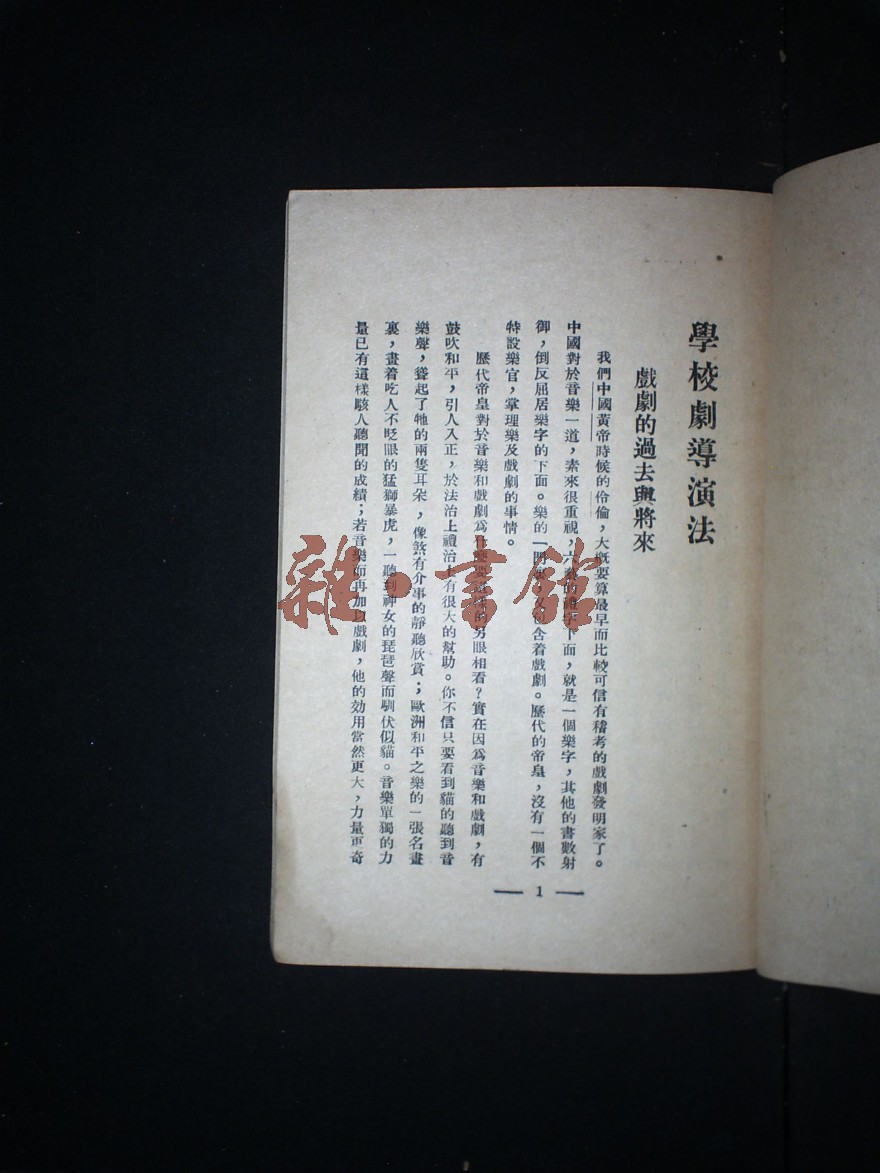 學校劇導演法
戲劇的過去與將來
我們中國黃帝時候的伶倫，大概要算最早而比較可信有稽考的戲劇發明家了。
中國對於音樂一道，素來很重視，六的下面，就是一個樂字，其他的書數射
御，倒反屈居樂字的下面。樂的一含着戲劇。歷代的帝皇，沒有一個不
特設樂官，掌理樂及戲劇的事情。
歷代帝皇對於音樂和戲劇爲什麼要的另眼相看？實在因爲音樂和戲劇，有
鼓吹和平，引人入正，於法治上禮治上有很大的幫助。你不信只要看到貓的聽到音
樂聲，聳起了牠的兩隻耳朵，像煞有介事的靜聽欣賞；歐洲和平之樂的一張名畫
裏，畫着吃人不眨眼的猛獅暴虎，一聽到神女的琵琶聲而馴伏似貓。音樂單獨的力
量已有這樣駭人聽聞的成績；若音樂而再加以戲劇，他的効用當然更大，力量更奇
— 1 —
雜·書館